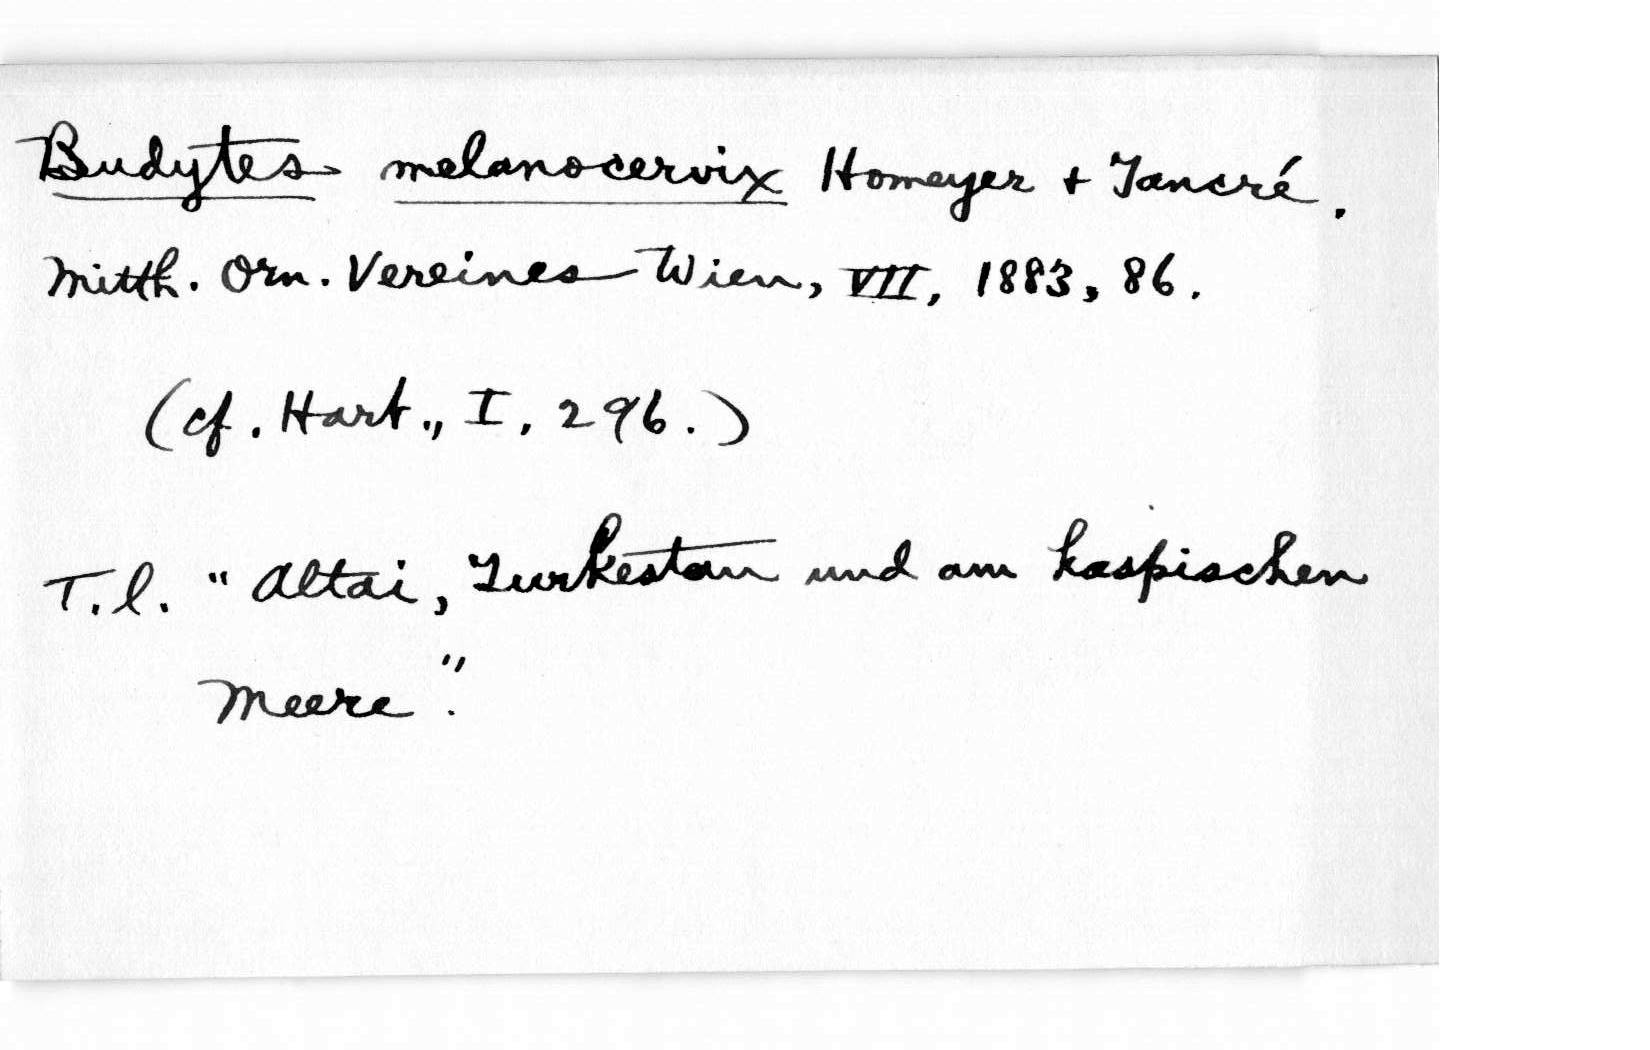 Budytes melanocervix Homeyer + Tancré.
Mitth. Orn. Vereines Wien, VII, 1883, 86.
(cf. Hart., I, 296.)
T.l. "Altai, Turkestan und am kaspischen
Meere".